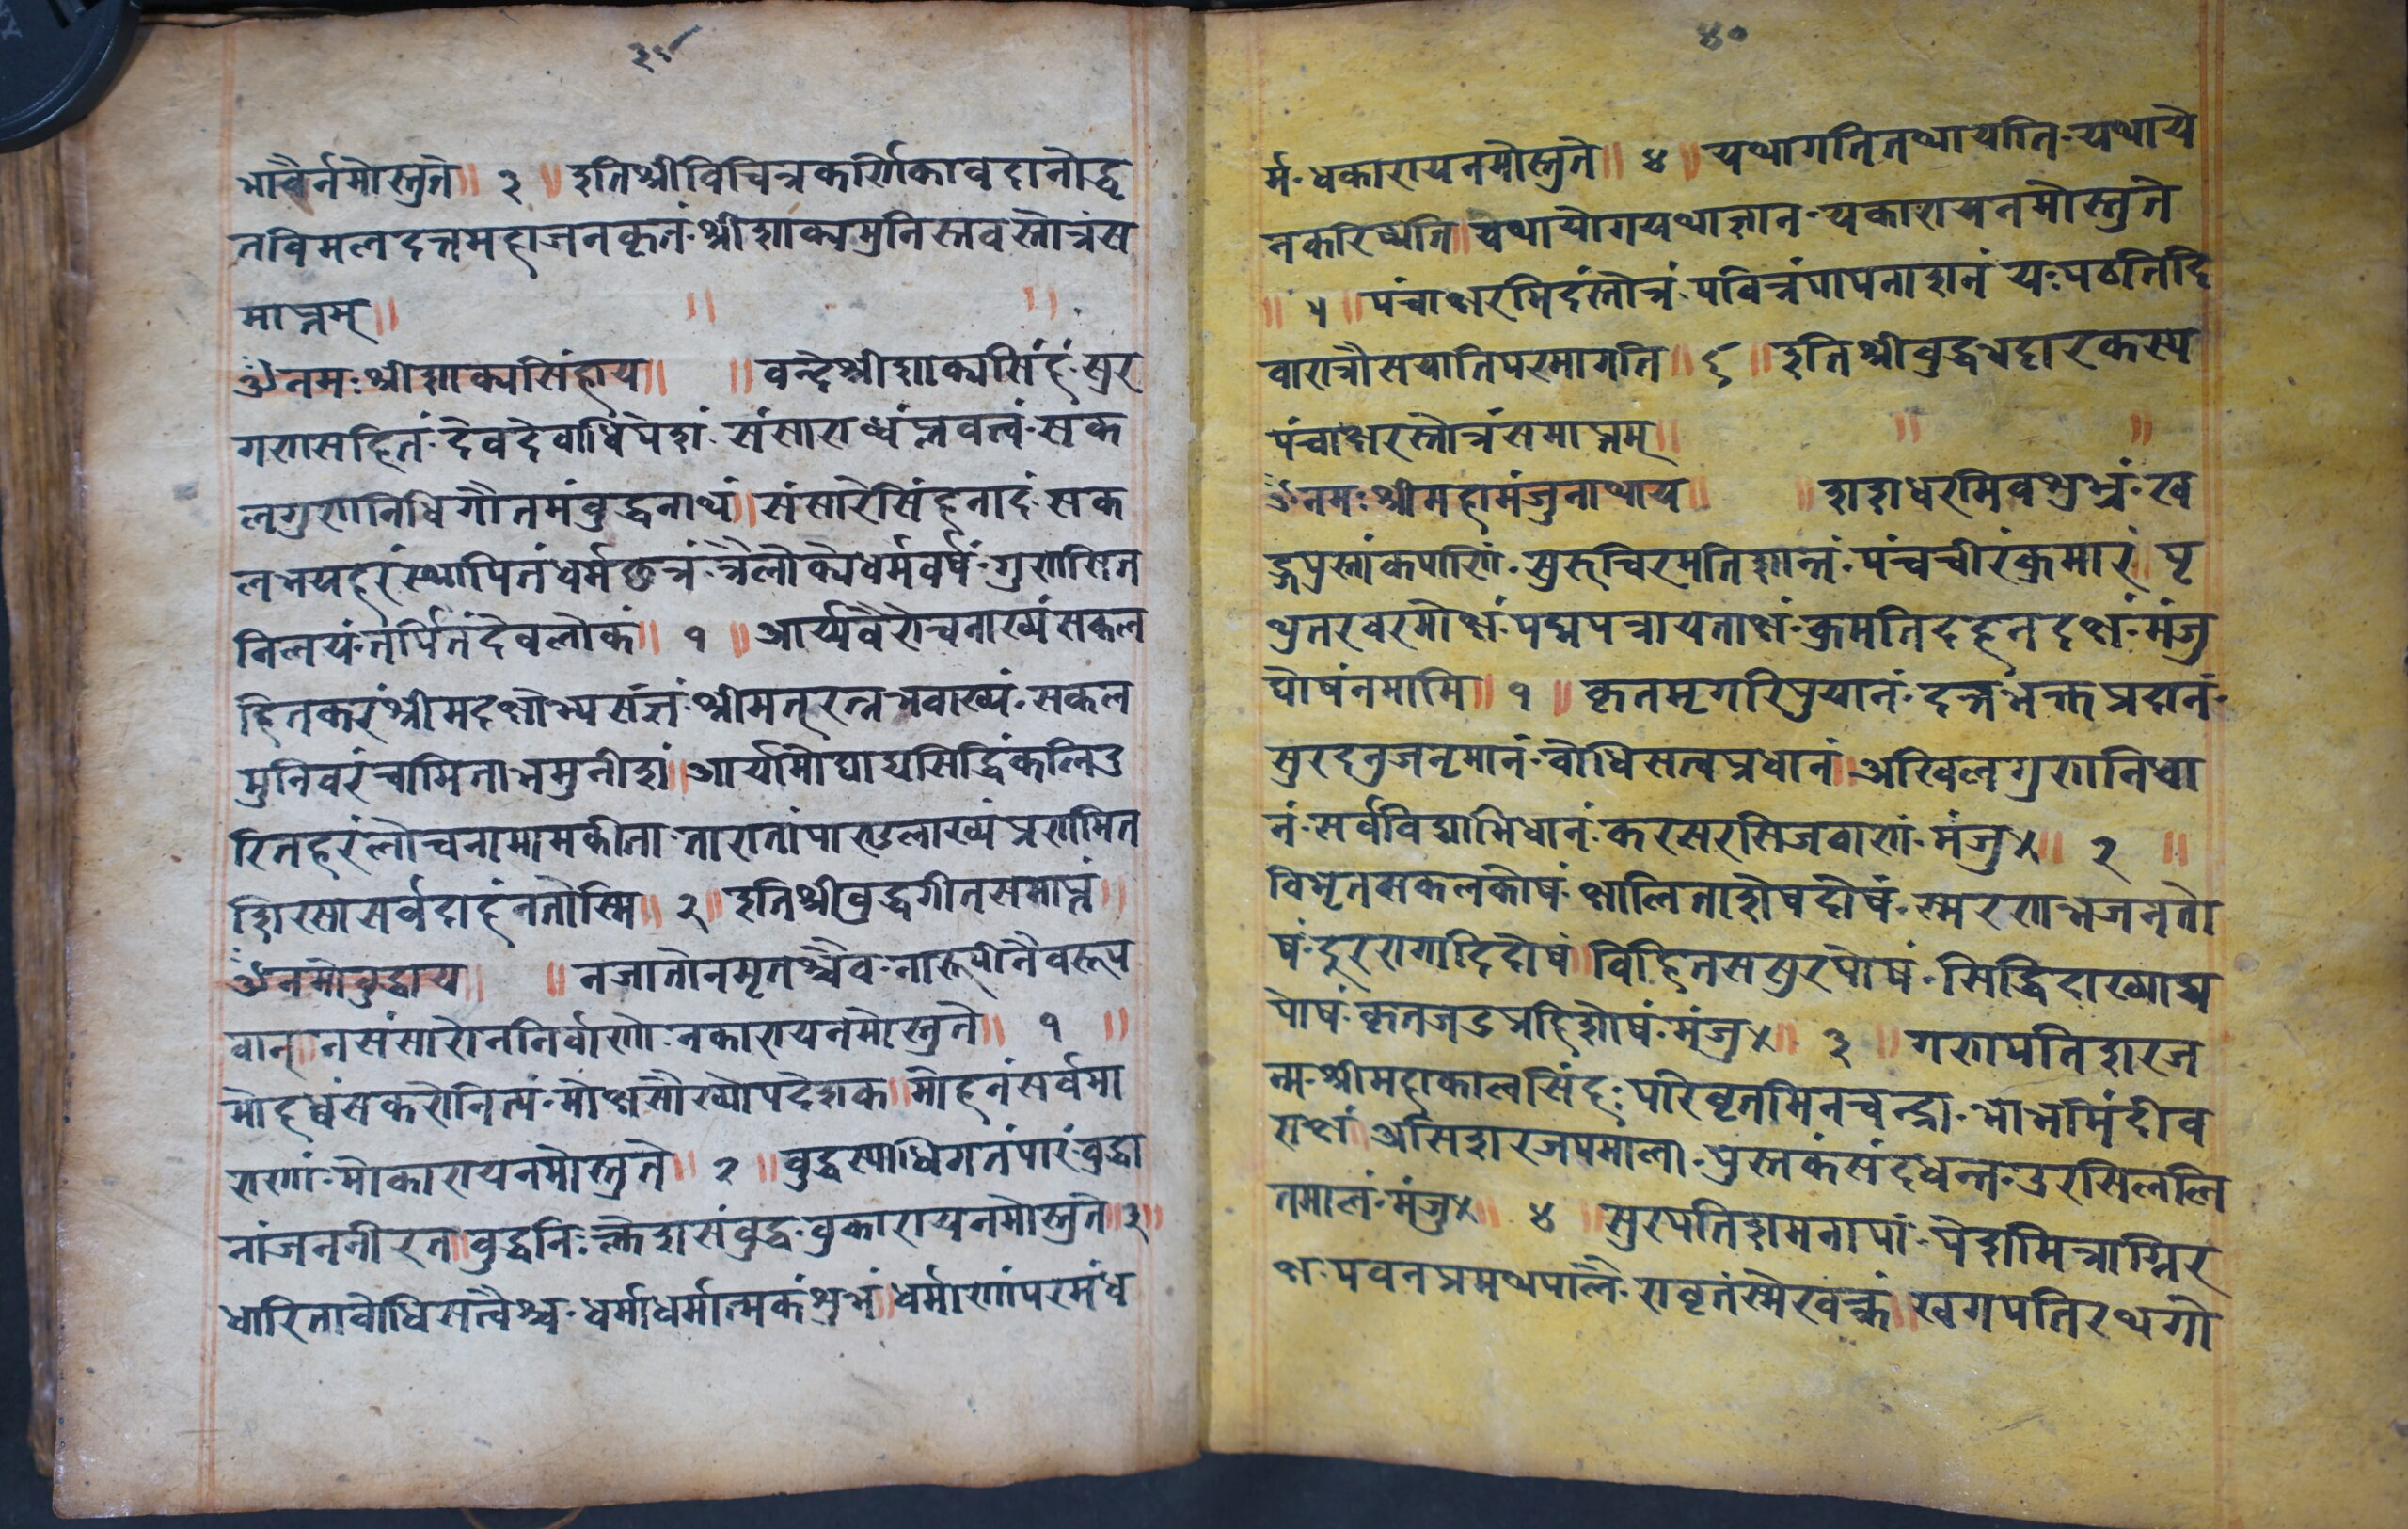 ३९
भावैर्नमोस्तुते॥ ३ ॥ इतिश्रीविचित्रकर्णिकावदानोद्धृ
तविमलदत्तमहाजनकृतं श्रीशाक्यमुनिस्तवस्तोत्रंस
माप्तम्॥ ॥ ॥
ॐनमःश्रीशाक्यसिंहाय॥ ॥ वन्देश्रीशाक्यसिंहं सुर
गणसहितं देवदेवाधिपेशं संसाराब्धं प्लवत्वं सक
लगुणनिधिगौतमंबुद्धनाथं॥ संसारेसिंहनादं सक
लभयहरंस्थापितंधर्मछत्रं त्रैलोक्येधर्मवर्षं गुणसित
निलयं तर्पितंदेवलोकं॥ १ ॥ आर्य्यवैरोचनाख्यंसकल
हितकरंश्रीमदक्षोभ्यसंज्ञं श्रीमत्रत्नभवाख्यं सकल
मुनिवरंचामिताभमुनीशं॥ आर्यामोघाद्यसिद्धिंकलिदु
रितहरंलोचनामामकीना तारातांपाण्डुलाख्यंप्रणमित
शिरसासर्वदाहंनतोस्मि॥ २ ॥ इतिश्रीबुद्धगीतसमाप्तं॥
ॐनमोबुद्धाय॥ ॥ नजातोनमृतश्चैव नारूपीनैवरूप
वान् नसंसारोननिर्वाणो नकारायनमोस्तुते॥ १ ॥
मोहध्वंसकरोनित्यं मोक्षसौख्योपदेशक॥ मोहनंसर्वमा
राणां मोकारायनमोस्तुते॥ २ ॥ बुद्धस्याधिगतंपारं बुद्धा
नांजननीरत॥ बुद्धनिःक्लेशसंबुद्ध बुकारायनमोस्तुते॥३॥
धारिताबोधिसत्वैश्च धर्माधर्मात्मकंशुभं॥ धर्माणांपरमंध
४०
र्म धकारायनमोस्तुते॥ ४ ॥ यथागतितथायाति यथाये
नकरिष्यति॥ यथायोगयथाज्ञान यकारायनमोस्तुते
॥ ५ ॥ पंचाक्षरमिदंस्तोत्रं पवित्रंपापनाशनं यःपठतिदि
वारात्रौसयातिपरमागति॥ ६ ॥ इतिश्रीबुद्धभट्टारकस्य
पंचाक्षरस्तोत्रंसमाप्तम्॥ ॥ ॥
ॐनमःश्रीमहामंजुनाथाय॥ ॥ शशधरमिवशुभ्रं ख
ड्गपुस्तांकपाणिं सुरुचिरमतिशान्तं पंचचीरंकुमारं॥ पृ
थुतरवरमोक्षं पद्मपत्रायताक्षं कुमतिदहनदक्षं मंजु
घोषंनमामि॥ १ ॥ कृतमृगरिपुयानं दत्तभक्तप्रदानं
सुरदनुजनृमानं बोधिसत्वप्रधानं॥ अखिलगुणनिधा
नं सर्वविद्याभिधानं करसरसिजबाणं मंजु×॥ २ ॥
विभृतसकलकोषं क्षालिताशेषदोषं स्मरणभजनतो
षं दूररागादिदोषं॥ विहितससुरपोषं सिद्धिदाख्याद्य
घोषं कृतजडप्रहिशोषं मंजु×॥ ३ ॥ गणपतिशरज
न्म श्रीमहाकालसिंह परिवृतमिनचन्द्रा भोभमिंदीव
राक्षं॥ असिशरजपमाला पुस्तकंसंदधन्त उरसिललि
तमालं मंजु×॥ ४ ॥ सुरपतिशमनापां पेशमित्राग्निर
क्ष पवनप्रमथपालै रावृतंस्मेरवक्त्रं॥ खगपतिरथगौ